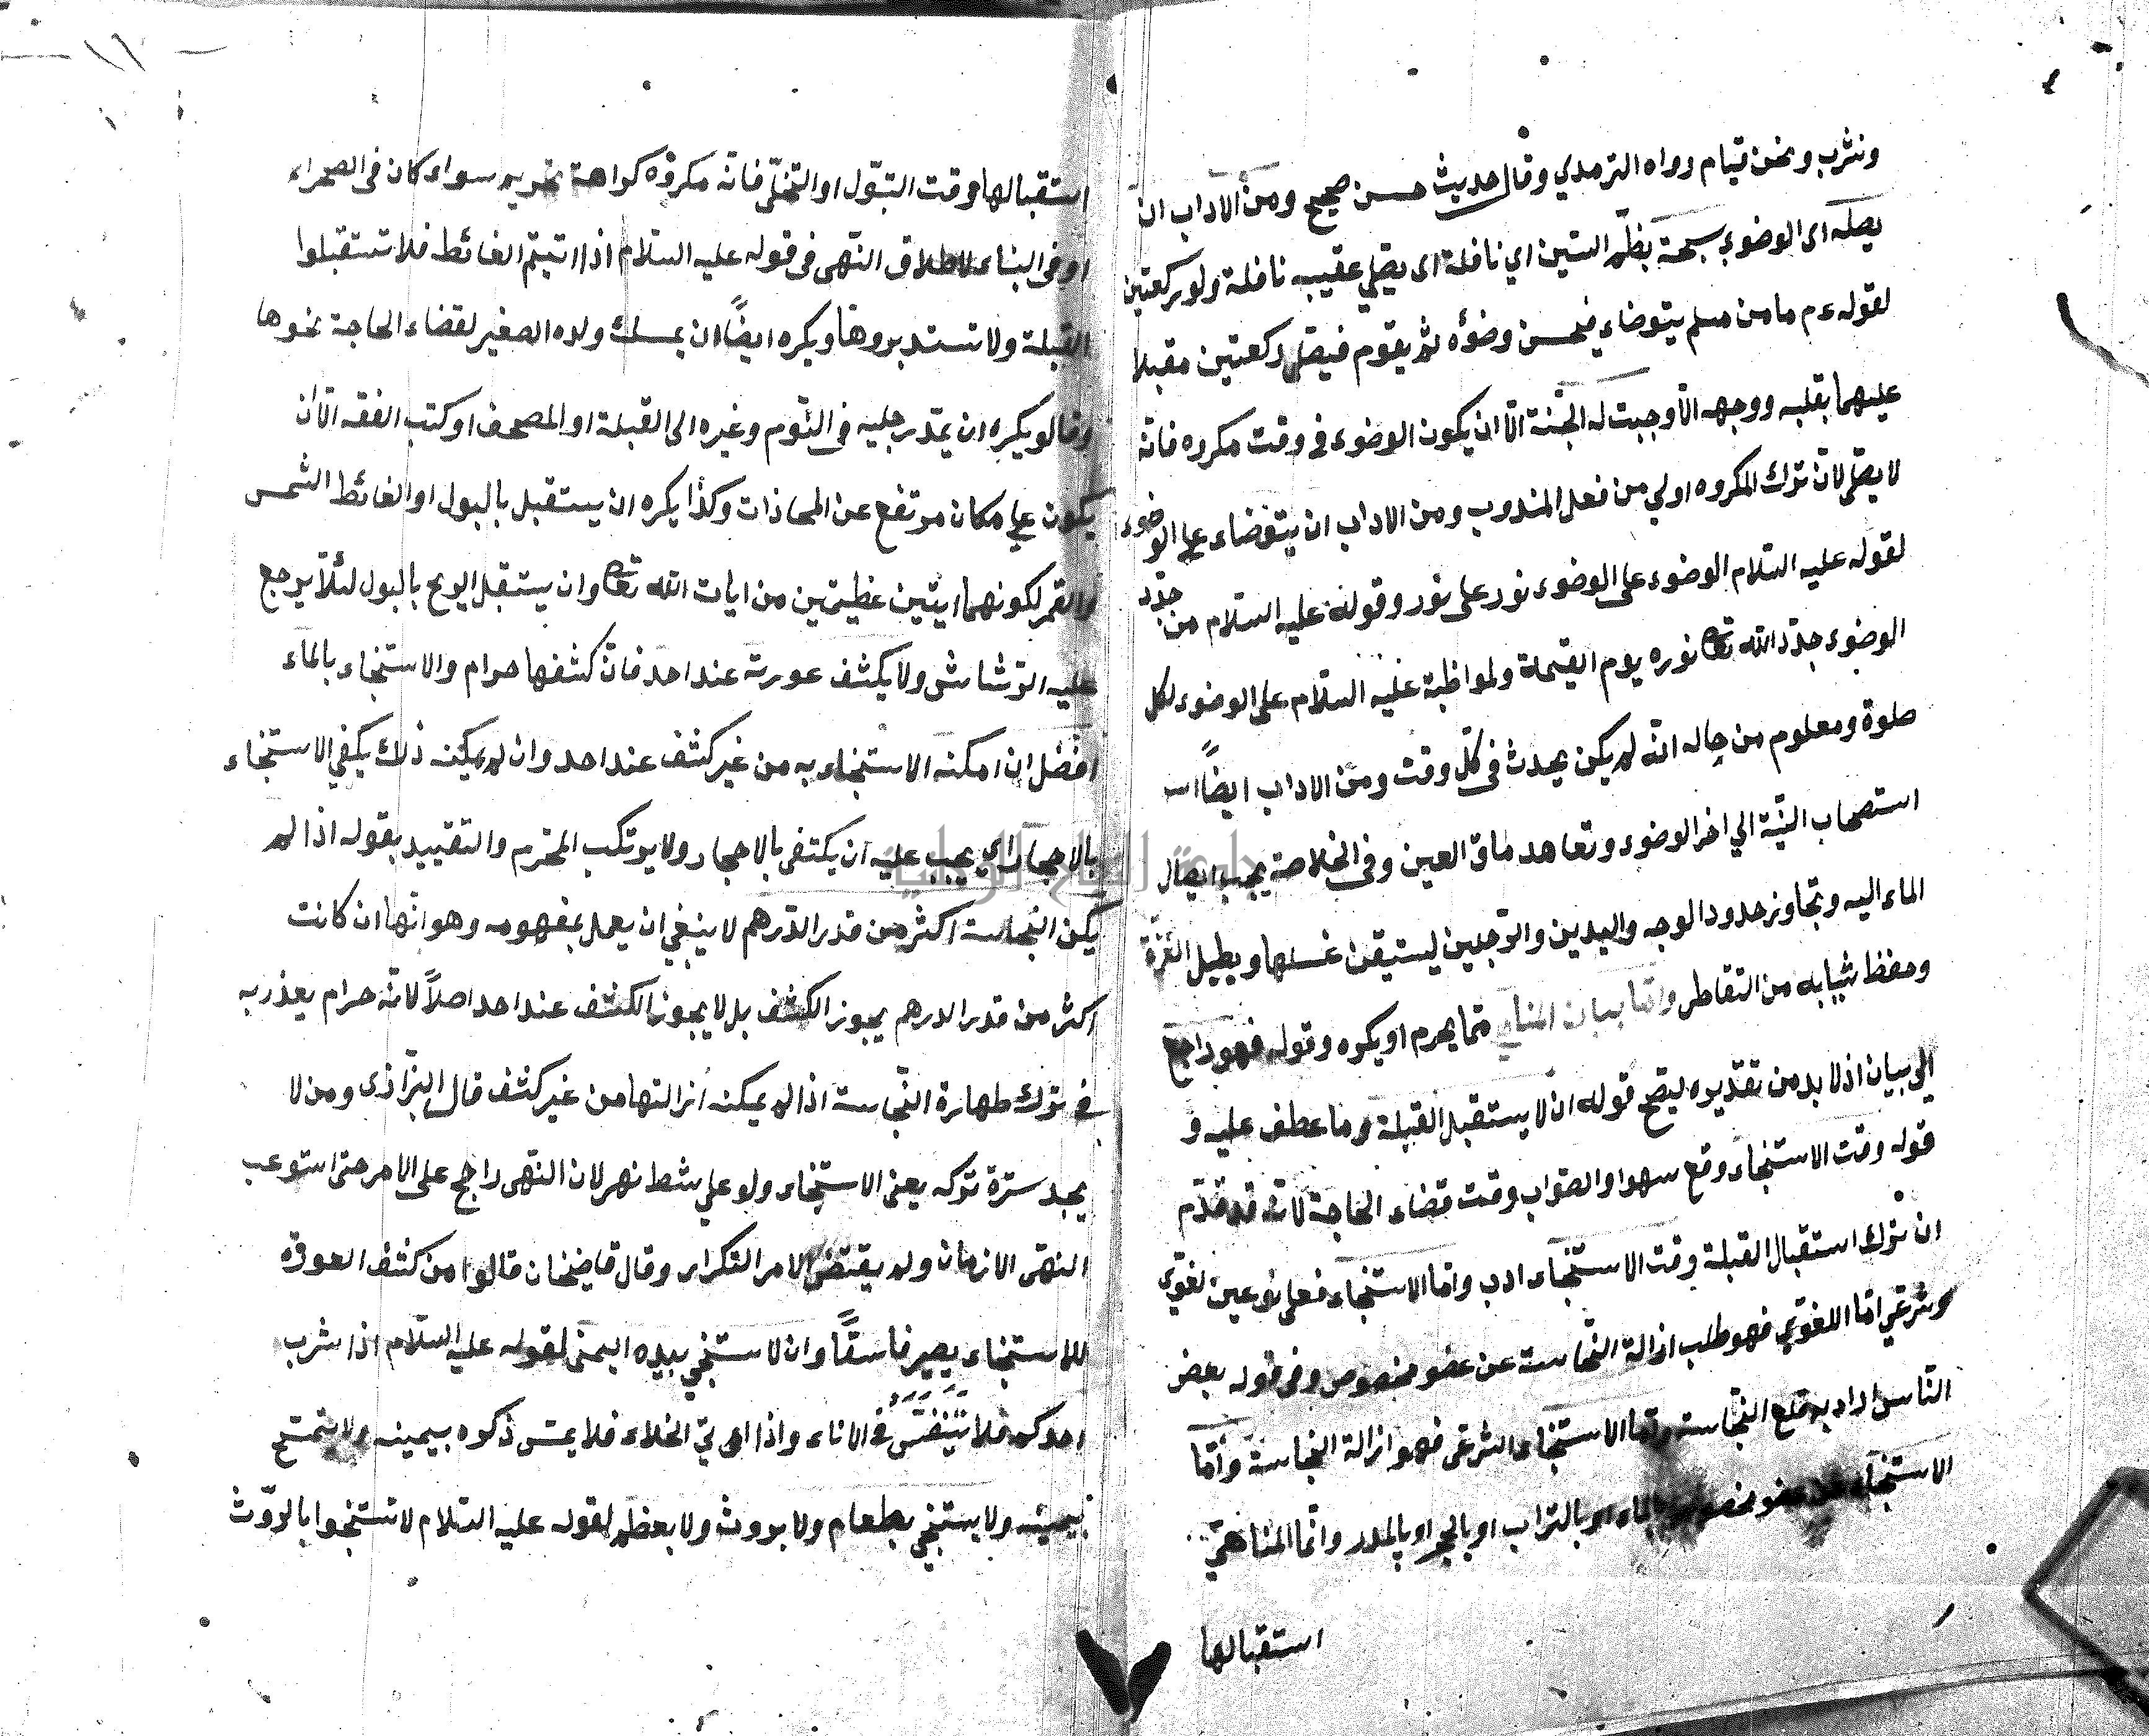 ونشرب ونحن قيام رواه الترمدي وقال حديث حسن صحيح ومن الاداب ان
يصله اى الوضوء بسبحة بضم السين اي نافلة اى يصلي عقيبه نافلة ولو ركعتين
لقوله ءم مامن مسلم يتوضاء فيحسن وضوئه ثم يقوم فيصلى ركعتين مقبلا
عليهما بقلبه ووجهه الا وجبت له الجنة الا ان يكون الوضوء فى وقت مكروه فانه
لا يصلى لان ترك المكروه اولي من فعل المندوب ومن الاداب ان يتوضاء على الوضوء
لقوله عليه السلام الوضوء على الوضوء نور على نور وقوله عليه السلام من جدد
الوضوء جدد الله تعا نوره يوم القيمة ولمواظبة عليه السلام على الوضوء لكل
صلوة ومعلوم من حاله انه لم يكن يحدث فى كل وقت ومن الاداب ايضاً اسـ
استصحاب النية الي اخر الوضوء وتعاهد ماق العين وفى الخلاصة يجب ايصال
الماء اليه وتجاوز حدود الوجه واليدين والرجلين ليستيقن غسلها ويطيل الغرة
وحفظ ثيابه من التقاطر واما بيان المناهي مما يحرم او يكره وقوله فهو راجع
الى بيان اذ لا بد من تقديره ليصح قوله ان لا يستقبل القبلة وما عطف عليه و
قوله وقت الاستنجاء وقع سهوا والصواب وقت قضاء الحاجة لانه قد قدم
ان ترك استقبال القبلة وقت الاستنجاء ادب واما الاستنجاء فعلى نوعين لغوي
وشرعي اما اللغوي فهو طلب ازالة النجاسة عن عضو مخصوص وفى قوله بعض
الناس اراد به قلع النجاسة واما الاستنجاء الشرعى فهو ازالة النجاسة واما
الاستنجاء عضو مخصوص بالماء او بالتراب او بالحجر او بالمدر واما المناهي
استقبالها
استقبالها وقت التبول او التخلى فانه مكروه كراهة تحريم سواء كان فى الصحراء
او فى البناء لاطلاق النهى فى قوله عليه السلام اذا اتيتم الغائط فلا تستقبلوا
القبلة ولا تستدبروها ويكره ايضاً ان يمسك ولده الصغير لقضاء الحاجة نحوها
وقالو يكره ان يمد رجليه فى النوم وغيره الى القبلة او المصحف او كتب الفقه الا ان
يكون علي مكان مرتفع عن المحاذات وكذا يكره ان يستقبل بالبول او الغائط الشمس
والقمر لكونهما ايتين عظيمتين من ايات الله تعا وان يستقبل الريح بالبول لئلا يرجع
عليه الرشاش ولا يكشف عورته عند احد فان كشفها حرام والاستنجاء بالماء
افضل ان امكنه الاستنجاء به من غير كشف عند احد وان لم يمكنه ذلك يكفي الاستنجاء
بالاحجار اي يجب عليه ان يكتفى بالاحجار ولا يرتكب المحرم والتقييد بقوله اذا لم
يكن النجاسة اكثر من قدر الدرهم لا ينبغي ان يعمل بمفهومه وهو انها ان كانت
اكثر من قدر الدرهم يجوز الكشف بل لا يجوز الكشف عند احد اصلاً لانه حرام يعذر به
فى ترك طهارة النجاسة اذا لم يمكنه ازالتها من غير كشف قال البزازى ومن لا
يجد سترة تركه يعنى الاستنجاء ولو علي شط نهر لان النهى راجح على الامر حتى استوعب
النهى الازمان ولم يقتض الامر التكرار وقال قاضيخان قالوا من كشف العورة
للاستنجاء يصير فاسقاً وان لا يستنجي بيده اليمنى لقوله عليه السلام اذا شرب
احدكم فلا يتنفس فى الاناء واذا اتى الخلاء فلا يمس ذكره بيمينه ولا يتمسح
بيمينه ولا يستنجي بطعام ولا بروث ولا بعظم لقوله عليه السلام لا تستنجوا بالروث
جامعة النجاح الوطنية